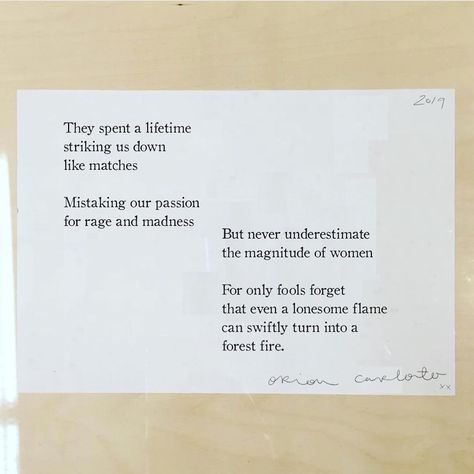 2019
They spent a lifetime
striking us down
like matches
Mistaking our passion
for rage and madness
But never underestimate
the magnitude of women
For only fools forget
that even a lonesome flame
can swiftly turn into a
forest fire.
orion carloto
xx